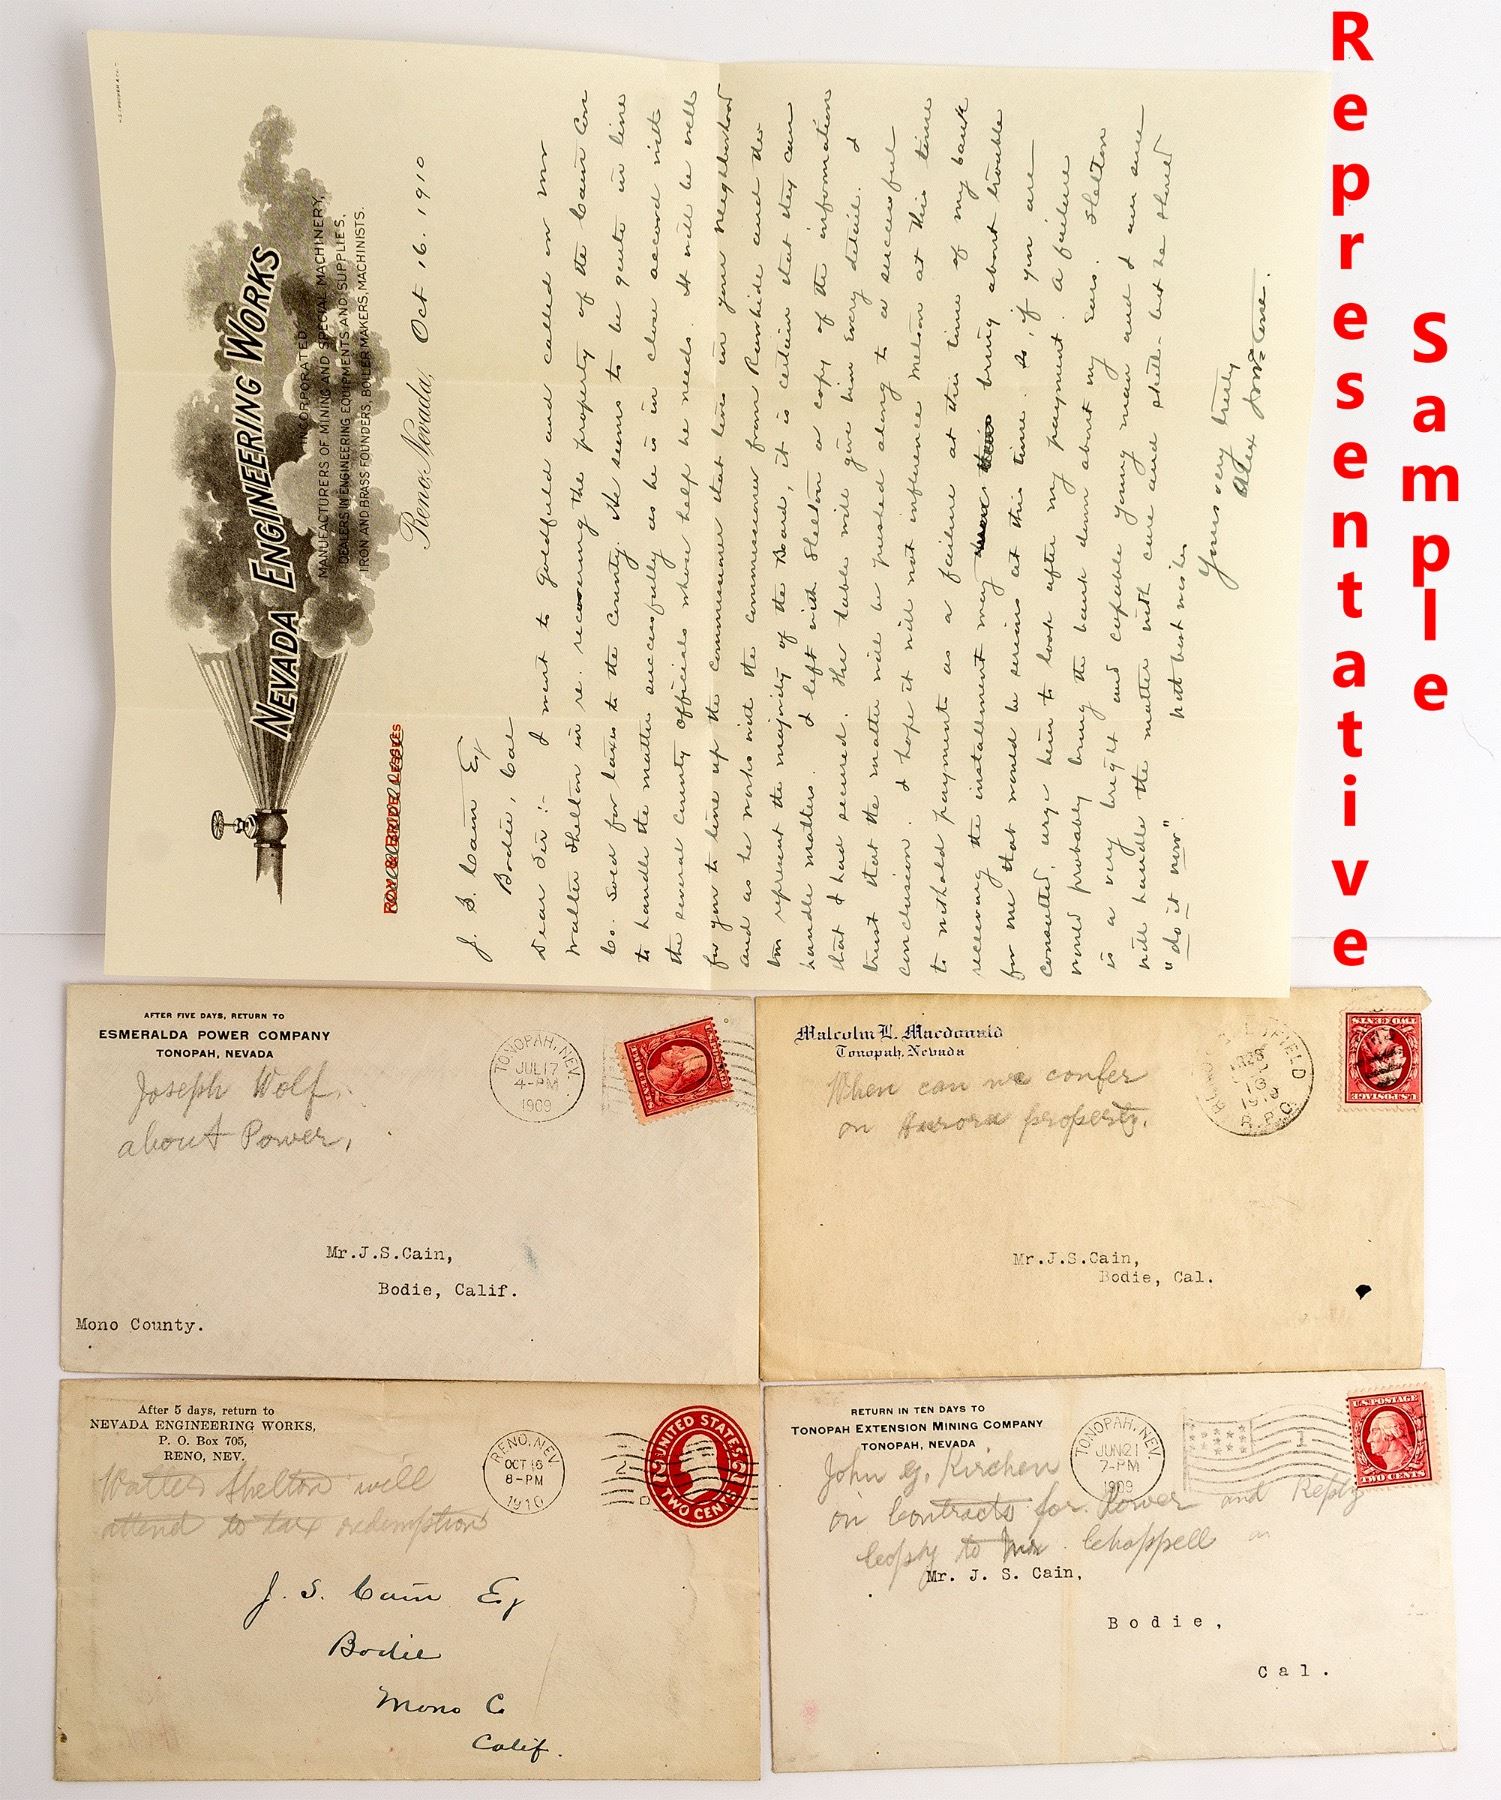 Representative
Sample
NEVADA ENGINEERING WORKS
INCORPORATED
MANUFACTURERS OF MINING AND SPECIAL MACHINERY,
DEALERS IN ENGINEERING EQUIPMENTS AND SUPPLIES,
IRON AND BRASS FOUNDERS, BOILER MAKERS, MACHINISTS.
Reno, Nevada, Oct 16. 1910
J. S. Cain Eq
Bodie, Cal
Dear Sir :- I went to Goldfield and called on Mr
Walter Shelton in re. recovering the property of the Cain Con
Co. sold for taxes to the County. He seems to be quite in line
to handle the matter successfully as he is in close accord with
the several County Officials whose help he needs. It will be well
for you to line up the Commissioner that lives in your neighborhood
and as he works with the commissioner from Rawhide and the
two represent the majority of the Board, it is certain that they can
handle matters. I left with Shelton a copy of the information
that I had secured. The table will give him every detail. I
trust that the matter will be pushed along to a successful
conclusion. I hope it will not influence Melson at this time
to withold payments as a failure at this time of my bank
receiving the installment may bring about trouble
for me that would be serious at this time. So, if you are
consulted, urge him to look after my payment. A failure
would probably bring the bank down about my ears. Shelton
is a very bright and capable young man and I am sure
will handle the matter with care and skill - but he should
"do it now". With best wishes
Yours very truly
AFTER FIVE DAYS, RETURN TO
ESMERALDA POWER COMPANY
TONOPAH, NEVADA
Joseph Wolf
about Power,
TONOPAH, NEV.
JUL 17
4-PM
1909
U.S. POSTAGE
TWO CENTS
Mr.J.S.Cain,
Bodie, Calif.
Mono County.
Malcolm L. Macdonald
Tonopah, Nevada
When can we confer
on Aurora property.
R.P.O.
U.S. POSTAGE
TWO CENTS
Mr.J.S.Cain,
Bodie, Cal.
After 5 days, return to
NEVADA ENGINEERING WORKS,
P. O. Box 705,
RENO, NEV.
Walter Shelton will
attend to tax redemption
RENO, NEV.
OCT 16
8-PM
1910
2
UNITED STATES
2 TWO CENTS 2
J. S. Cain Eq
Bodie
Mono Co
Calif.
RETURN IN TEN DAYS TO
TONOPAH EXTENSION MINING COMPANY
TONOPAH, NEVADA
John G. Kirchen
on Contracts for Power and Reply
Copy to Mr Chappell
TONOPAH, NEV.
JUN 21
7-PM
1909
1
U.S. POSTAGE
TWO CENTS
Mr. J. S. Cain,
Bodie,
Cal.